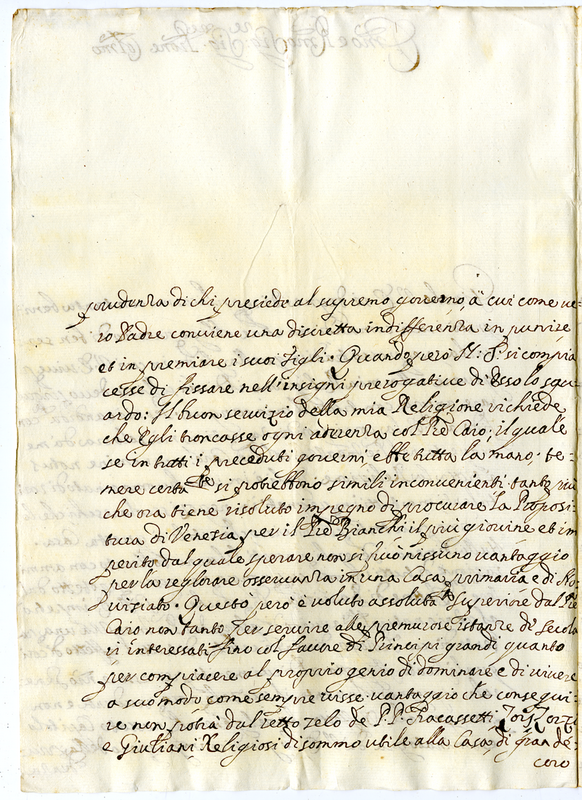 prudenza di chi presiede al supremo governo, à cui come ve=
ro Padre conviene una discretta indifferenza in punire,
et in premiare i suoi figli. Quando però si compia
cesse di fissare nell'insigni prerogative di Esso lo sgu
ardo: Il buon servizio della mia Religione richiede,
che Egli troncasse ogni aderenza col Pre Caio; il quale
se in tutti i preceduti governi, ebbe tutta la mano; te=
mere certa.te si potrebbono simili inconvenienti, tanto più
che ora tiene risoluto impegno di procurare la Preposi=
tura di Venezia per il Pre Bianchi il più giovine et im
perito, dal quale sperare non si può nissuno vantaggio
per la regolare osservanza in una Casa primaria e di No=
viziato. Questo però è voluto assoluta.te Superiore dal Pre
Caio non tanto per servire alle premurose istanze de' Secola
ri interessati fino col favore di Principi grandi quanto
per compiacere al proprio genio di dominare e di vivere
a suo modo come sempre visse. vantaggio che consegui=
re non potrà dal retto zelo de P.P. Fracassetti,
e Giuliani, Religiosi di sommo utile alla Casa, di gran de=
coro